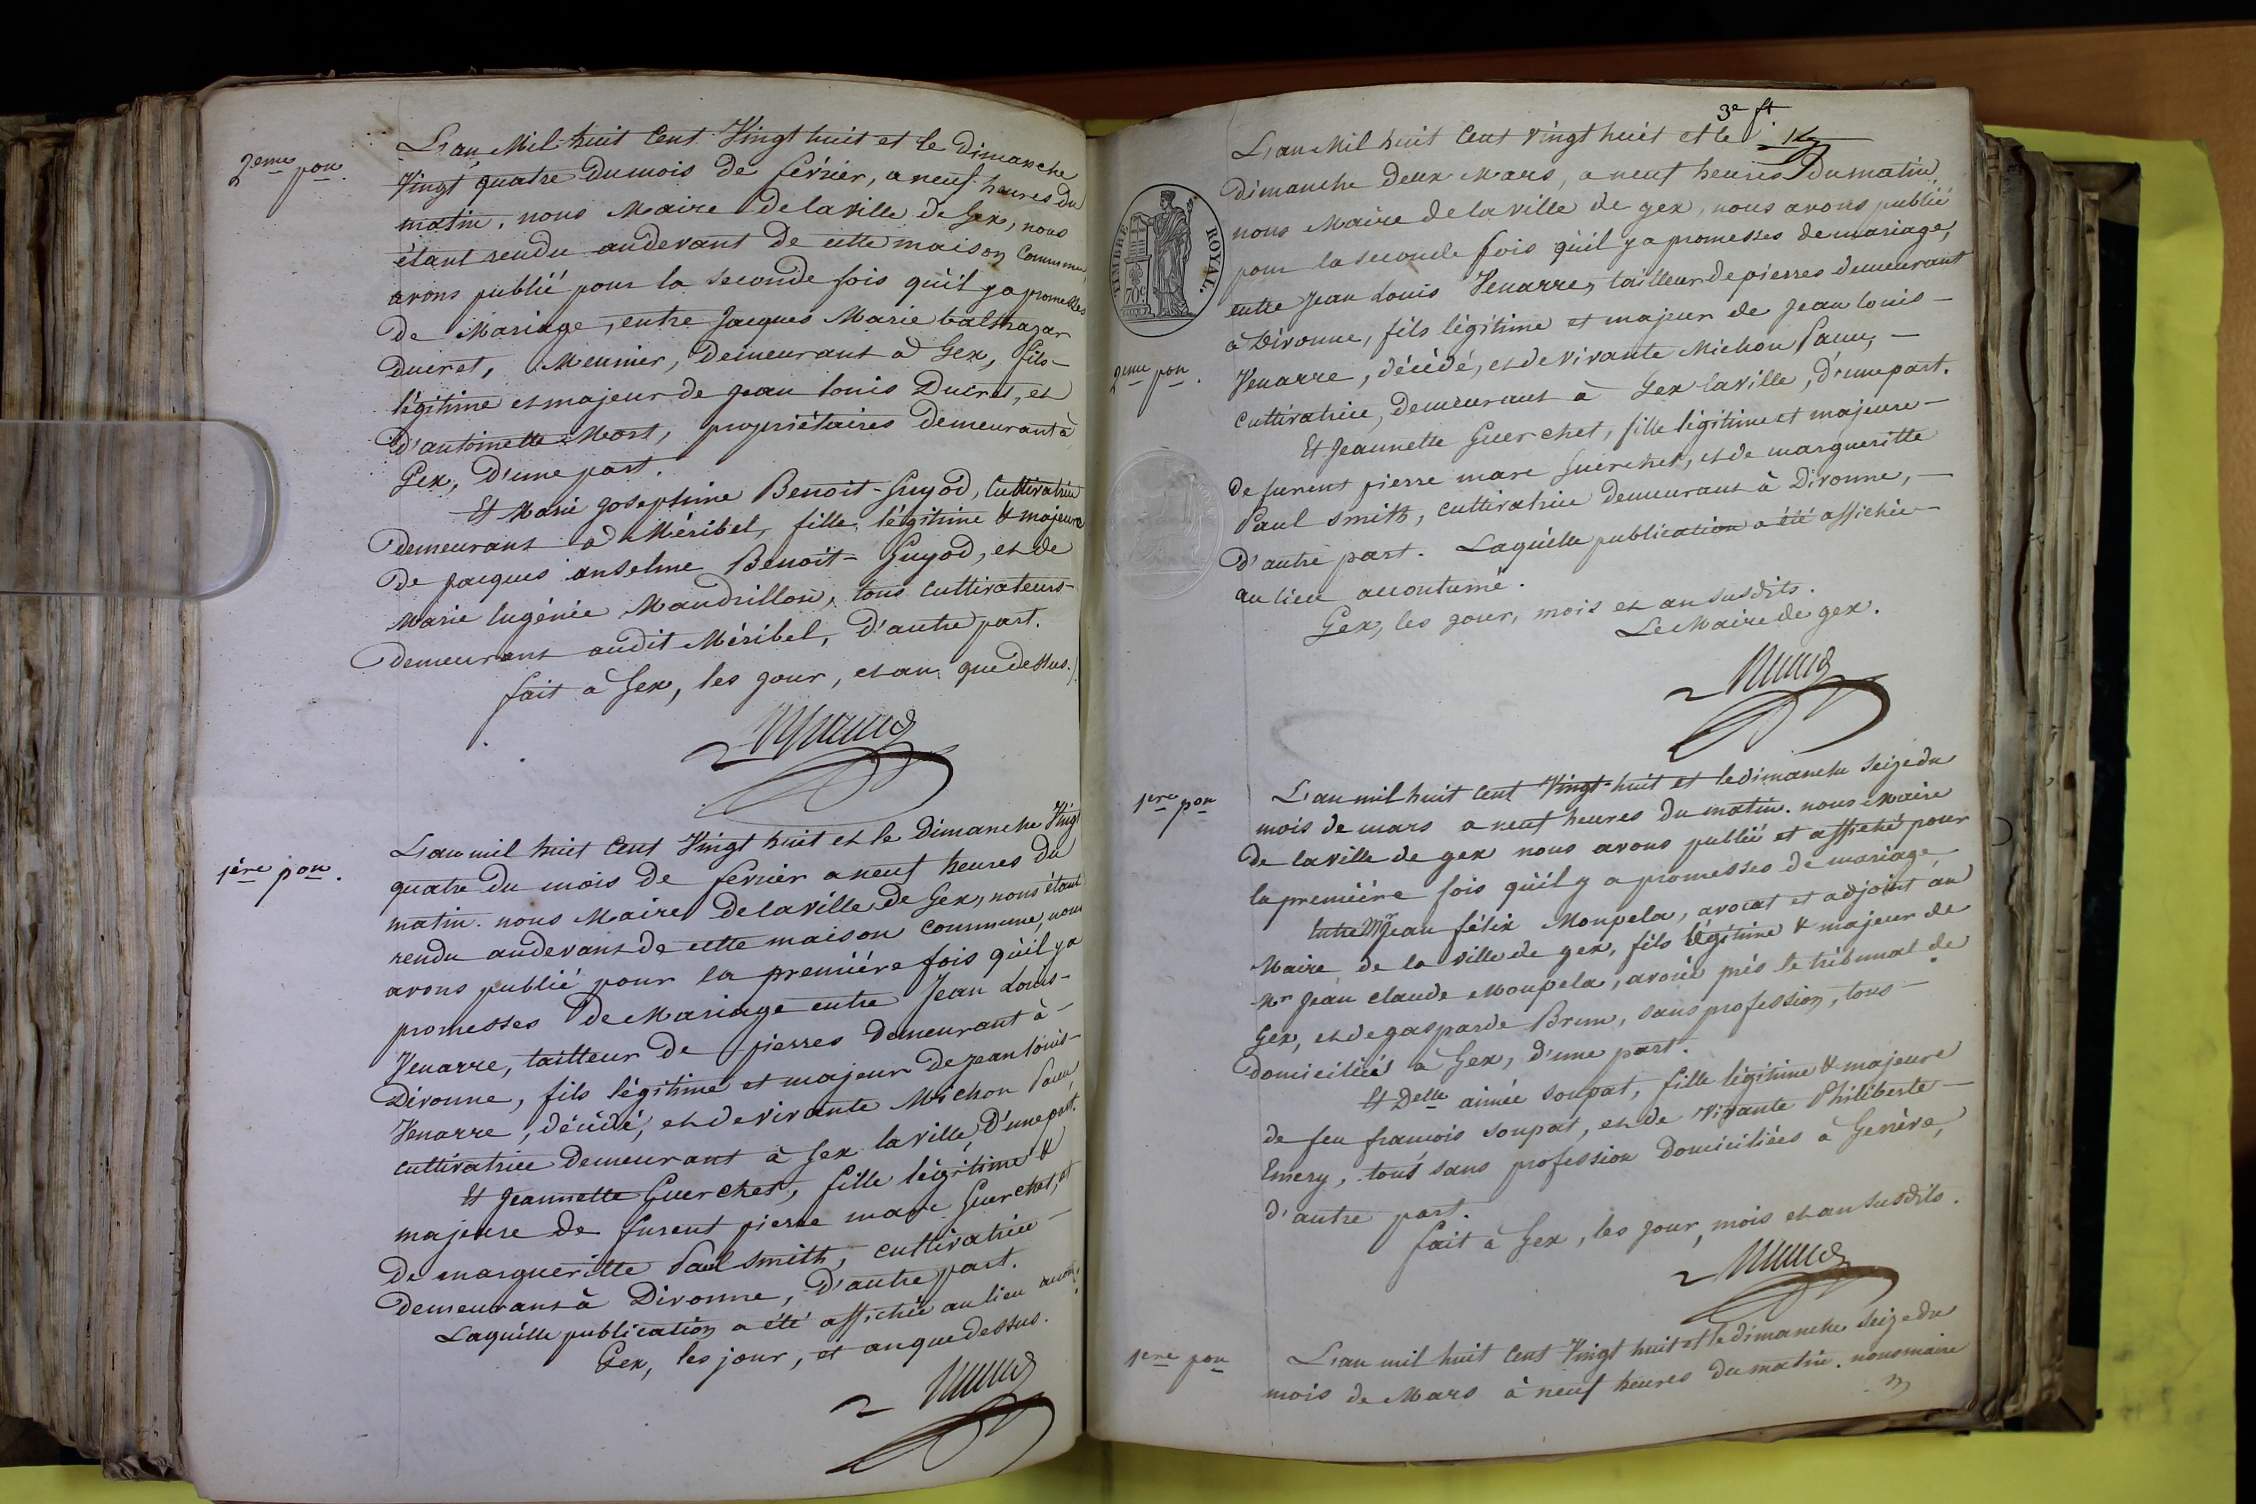 2eme pon.
L'an Mil huit Cent Vingt huit et le dimanche
Vingt quatre du mois de février, a neuf heures du
matin. nous Maire de la ville de Gex, nous
étant rendu audevant de cette maison Commune
avons publié pour la seconde fois qu'il y a promesses
de Mariage, entre Jacques Marie balthazar
Ducret, Meunier, demeurant à Gex, fils
légitime et majeur de jean louis Ducret, et
d'antoinette Mort, propriétaires demeurant à
Gex, D'une part.
Et Marie josephine Benoit-Guyod, Cultivatrice
demeurant à Méribel, fille légitime & majeure
De jacques anselme Benoit-Guyod, et de
Marie Eugénie Maudrillon, tous Cultivateurs
demeurant audit Méribel, D'autre part.
fait à Gex, les jour, et an que dessus./.
1ère pon.
L'an mil huit Cent Vingt huit et le Dimanche Vingt
quatre du mois de février a neuf heures du
matin. nous Maire de la ville de Gex, nous étant
rendu audevant de cette maison commune, nous
avons publié pour la première fois qu'il y a
promesses de Mariage entre Jean Louis
Venarre, tailleur de pierres demeurant à
Divonne, fils légitime et majeur de jean louis
Venarre, décédé, et de vivante Michon
cultivatrice demeurant à Gex la ville, D'une part.
Et Jeannette Guerchet, fille légitime &
majeure de furent pierre marc Guerchet, et
De margueritte Paul Smith, cultivatrice
demeurant à Divonne, D'autre part.
Laquelle publication a été affichée au lieu accou:
Gex, les jour, et an que dessus.
3e ft
L'an Mil huit Cent vingt huit et le
Dimanche deux Mars, a neuf heures du matin,
nous Maire de la ville de gex, nous avons publié
pour la seconde fois qu'il y a promesses de mariage,
entre Jean Louis Venarre, tailleur de pierres demeurant
à Divonne, fils légitime et majeur de Jean louis
2eme pon.
Venarre, décédé, et de vivante Michon
cultivatrice, demeurant à Gex la ville, d'une part.
Et Jeannette Guerchet, fille légitime et majeure
de furent pierre marc Guerchet, et de margueritte
Paul Smith, cultivatrice demeurant à Divonne,
D'autre part. Laquelle publication a été affichée
au lieu accoutumé.
Gex, les jour, mois et an susdits.
Le Maire de gex.
TIMBRE ROYAL.
70c
1ere pon
L'an mil huit Cent Vingt-huit et le dimanche Seize du
mois de mars a neuf heures du matin. nous Maire
de la ville de gex nous avons publié et affiché pour
la première fois qu'il y a promesses de mariage,
Entre Mr jean félix Monpela, avocat et adjoint au
Maire de la ville de gex, fils légitime & majeur de
Mr Jean Claude Monpela, avoué près le tribunal de
Gex, et de gasparde Brun, sans profession, tous
domiciliés à Gex, d'une part.
Et Delle aimée Soupat, fille légitime & majeure
de feu francois Soupat, et de vivante Philiberte
Emery, tous sans profession Domiciliées à Genève,
D'autre part.
fait à Gex, les jour, mois et an susdits.
1ere pon
L'an mil huit Cent Vingt huit et le dimanche Seize du
mois de Mars à neuf heures du matin. nous maire